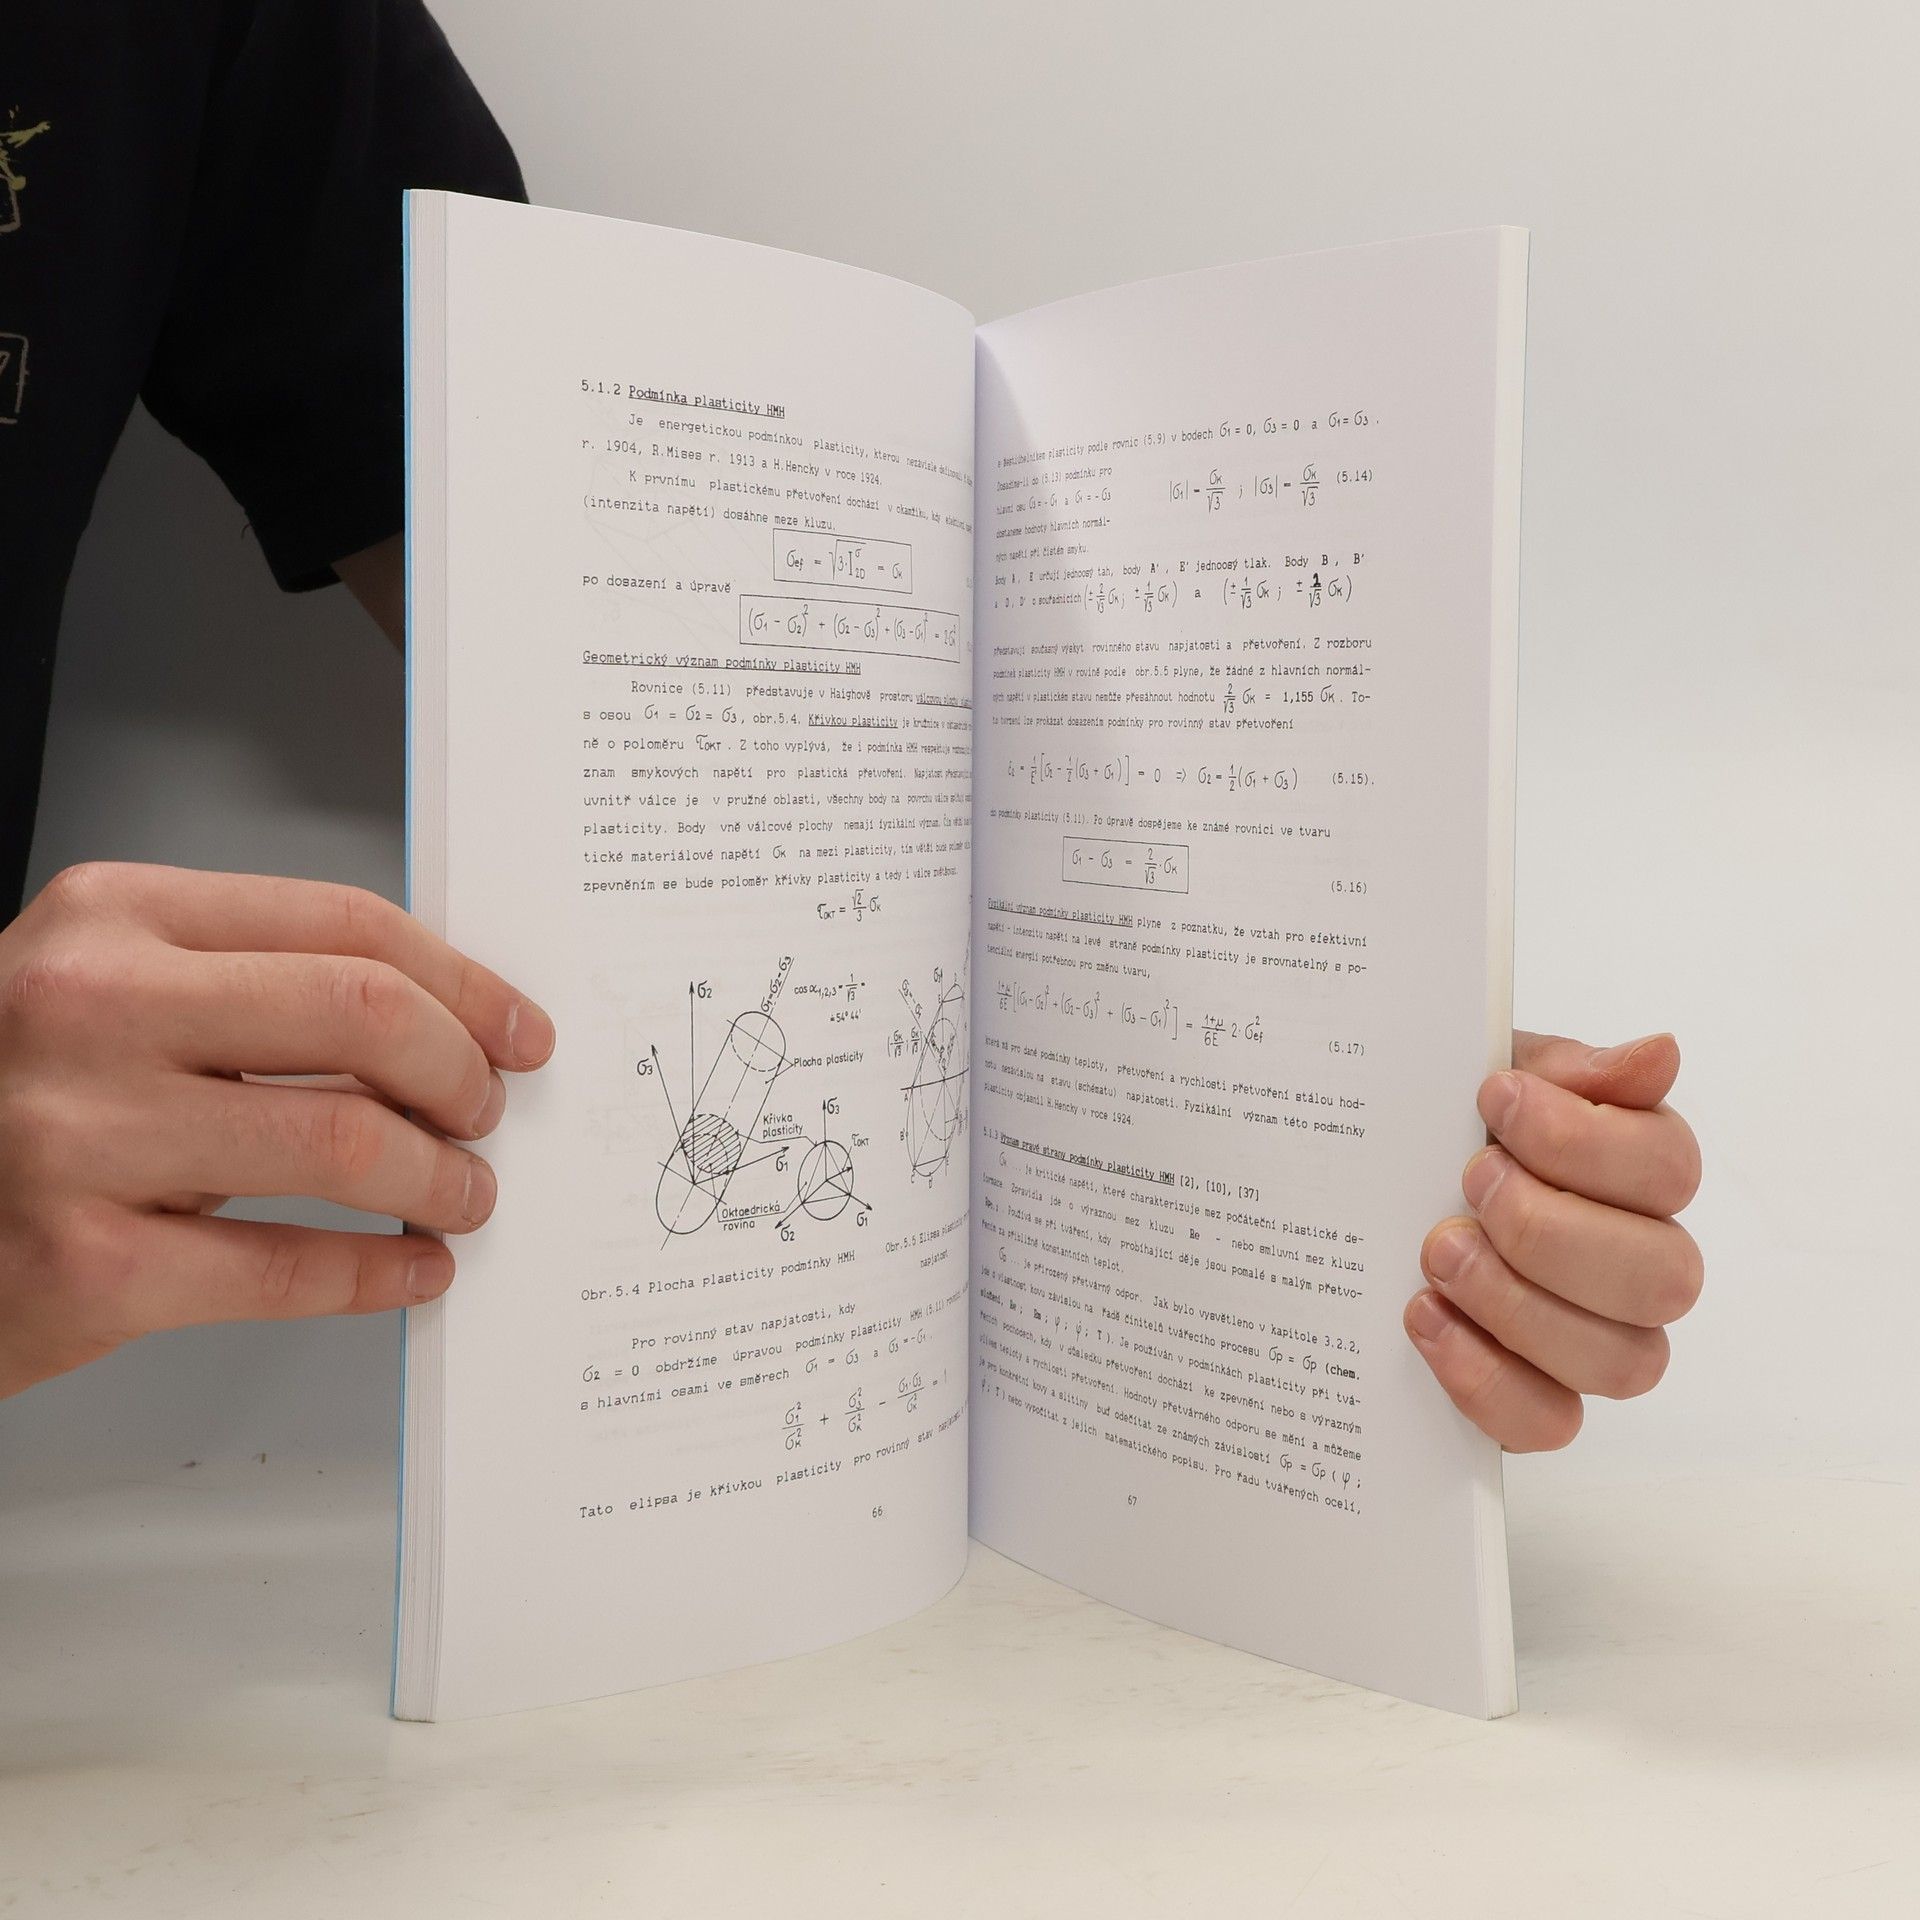 5.1.2 Podmínka plasticity HMH
Je energetickou podmínkou plasticity, kterou nezávisle definovali
r. 1904, R.Mises r. 1913 a H.Hencky v roce 1924.
K prvnímu plastickému přetvoření dochází v okamžiku, kdy efektivní
(intenzita napětí) dosáhne meze kluzu.
σef = √3·I₂D^σ = σK
po dosazení a úpravě
(σ1 - σ2)² + (σ2 - σ3)² + (σ3 - σ1)² = 2σK²
Geometrický význam podmínky plasticity HMH
Rovnice (5.11) představuje v Haighově prostoru válcovou plochu
s osou σ1 = σ2 = σ3, obr.5.4. Křivkou plasticity je kružnice v
ně o poloměru τOKT. Z toho vyplývá, že i podmínka HMH respektuje
znam smykových napětí pro plastická přetvoření. Napjatost
uvnitř válce je v pružné oblasti, všechny body na povrchu válce
plasticity. Body vně válcové plochy nemají fyzikální význam. Čím větší
tické materiálové napětí σK na mezi plasticity, tím větší bude poloměr
zpevněním se bude poloměr křivky plasticity a tedy i válce zvětšovat.
τOKT = √2/3 · σK
σ2
σ1=σ2=σ3
cos α1,2,3 = 1/√3 =
≐54° 44'
σ3
Plocha plasticity
Křivka
plasticity
σ1
Oktaedrická
rovina
σ3
τOKT
σ2
σ1
Obr.5.4 Plocha plasticity podmínky HMH
Obr.5.5 Elipsa plasticity
napjatost
Pro rovinný stav napjatosti, kdy
σ2 = 0 obdržíme úpravou podmínky plasticity HMH (5.11) rovnici
s hlavními osami ve směrech σ1 = σ3 a σ3 = -σ1.
σ1²/σK² + σ3²/σK² - σ1·σ3/σK² = 1
Tato elipsa je křivkou plasticity pro rovinný stav napjatosti
66
s šestiúhelníkem plasticity podle rovnic (5.9) v bodech σ1 = 0, σ3 = 0 a σ1 = σ3.
Dosadíme-li do (5.13) podmínku pro
hlavní osu σ3 = - σ1 a σ1 = - σ3
dostaneme hodnoty hlavních normál-
ných napětí při čistém smyku.
|σ1| = σK/√3 ; |σ3| = σK/√3 (5.14)
Body A, E určují jednoosý tah, body A', E' jednoosý tlak. Body B, B'
a D, D' o souřadnicích (± 2/√3 σK; ± 1/√3 σK) a (± 1/√3 σK; ± 2/√3 σK)
představují současný výskyt rovinného stavu napjatosti a přetvoření. Z rozboru
podmínek plasticity HMH v rovině podle obr.5.5 plyne, že žádné z hlavních normál-
ných napětí v plastickém stavu nemůže přesáhnout hodnotu 2/√3 σK = 1,155 σK. To-
to tvrzení lze prokázat dosazením podmínky pro rovinný stav přetvoření
ε2 = 1/E [σ2 - 1/2(σ3 + σ1)] = 0 => σ2 = 1/2(σ1 + σ3) (5.15).
do podmínky plasticity (5.11). Po úpravě dospějeme ke známé rovnici ve tvaru
σ1 - σ3 = 2/√3 · σK
(5.16)
Fyzikální význam podmínky plasticity HMH plyne z poznatku, že vztah pro efektivní
napětí - intenzitu napětí na levé straně podmínky plasticity je srovnatelný s po-
tenciální energií potřebnou pro změnu tvaru,
1+μ/6E [(σ1-σ2)² + (σ2-σ3)² + (σ3-σ1)²] = 1+μ/6E 2·σef²
(5.17)
která má pro dané podmínky teploty, přetvoření a rychlosti přetvoření stálou hod-
notu nezávislou na stavu (schématu) napjatosti. Fyzikální význam této podmínky
plasticity objasnil H.Hencky v roce 1924.
5.1.3 Význam pravé strany podmínky plasticity HMH [2], [10], [37]
σK ... je kritické napětí, které charakterizuje mez počáteční plastické de-
formace. Zpravidla jde o výraznou mez kluzu Re - nebo smluvní mez kluzu
Používá se při tváření, kdy probíhající děje jsou pomalé s malým přetvo-
řením za přibližně konstantních teplot.
σp ... je přirozený přetvárný odpor. Jak bylo vysvětleno v kapitole 3.2.2,
jde o vlastnost kovu závislou na řadě činitelů tvářecího procesu σp = σp (chem.
složení, Re; Rm; φ; φ̇; T). Je používán v podmínkách plasticity při tvá-
řecích pochodech, kdy v důsledku přetvoření dochází ke zpevnění nebo s výrazným
vlivem teploty a rychlosti přetvoření. Hodnoty přetvárného odporu se mění a můžeme
je pro konkrétní kovy a slitiny buď odečítat ze známých závislostí σp = σp ( φ ;
φ̇; T ) nebo vypočítat z jejich matematického popisu. Pro řadu tvářených ocelí,
67